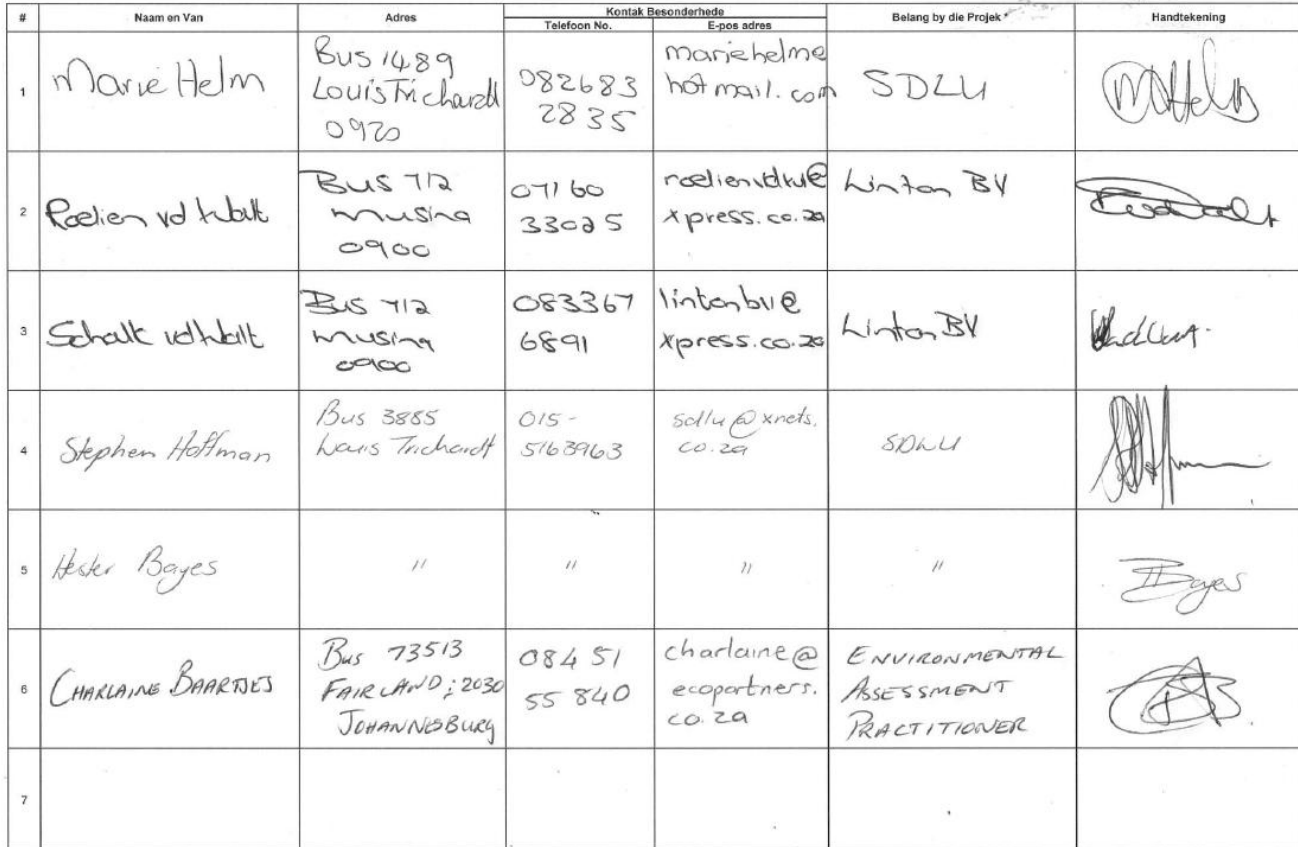 # Naam en Van Adres Kontak Besonderhede Belang by die Projek * Handtekening
Telefoon No. E-pos adres
1 Marie Helm Bus 1489 Louis Trichardt 0920 082683 2835 mariehelme hotmail.com SDLU
2 Roelien vd Walt Bus 712 Musina 0900 07160 33025 roelienvdw@ xpress.co.za Linton BV
3 Schalk vd Walt Bus 712 Musina 0900 083367 6891 lintonbv@ xpress.co.za Linton BV
4 Stephen Hoffman Bus 3885 Louis Trichardt 015- 5163963 sdlu@xnets. co.za SDLU
5 Hester Bayes " " " " Bayes
6 CHARLAINE BAARTJES Bus 73513 FAIRLAND; 2030 JOHANNESBURG 084 51 55 840 charlaine@ ecopartners. co.za ENVIRONMENTAL ASSESSMENT PRACTITIONER
7